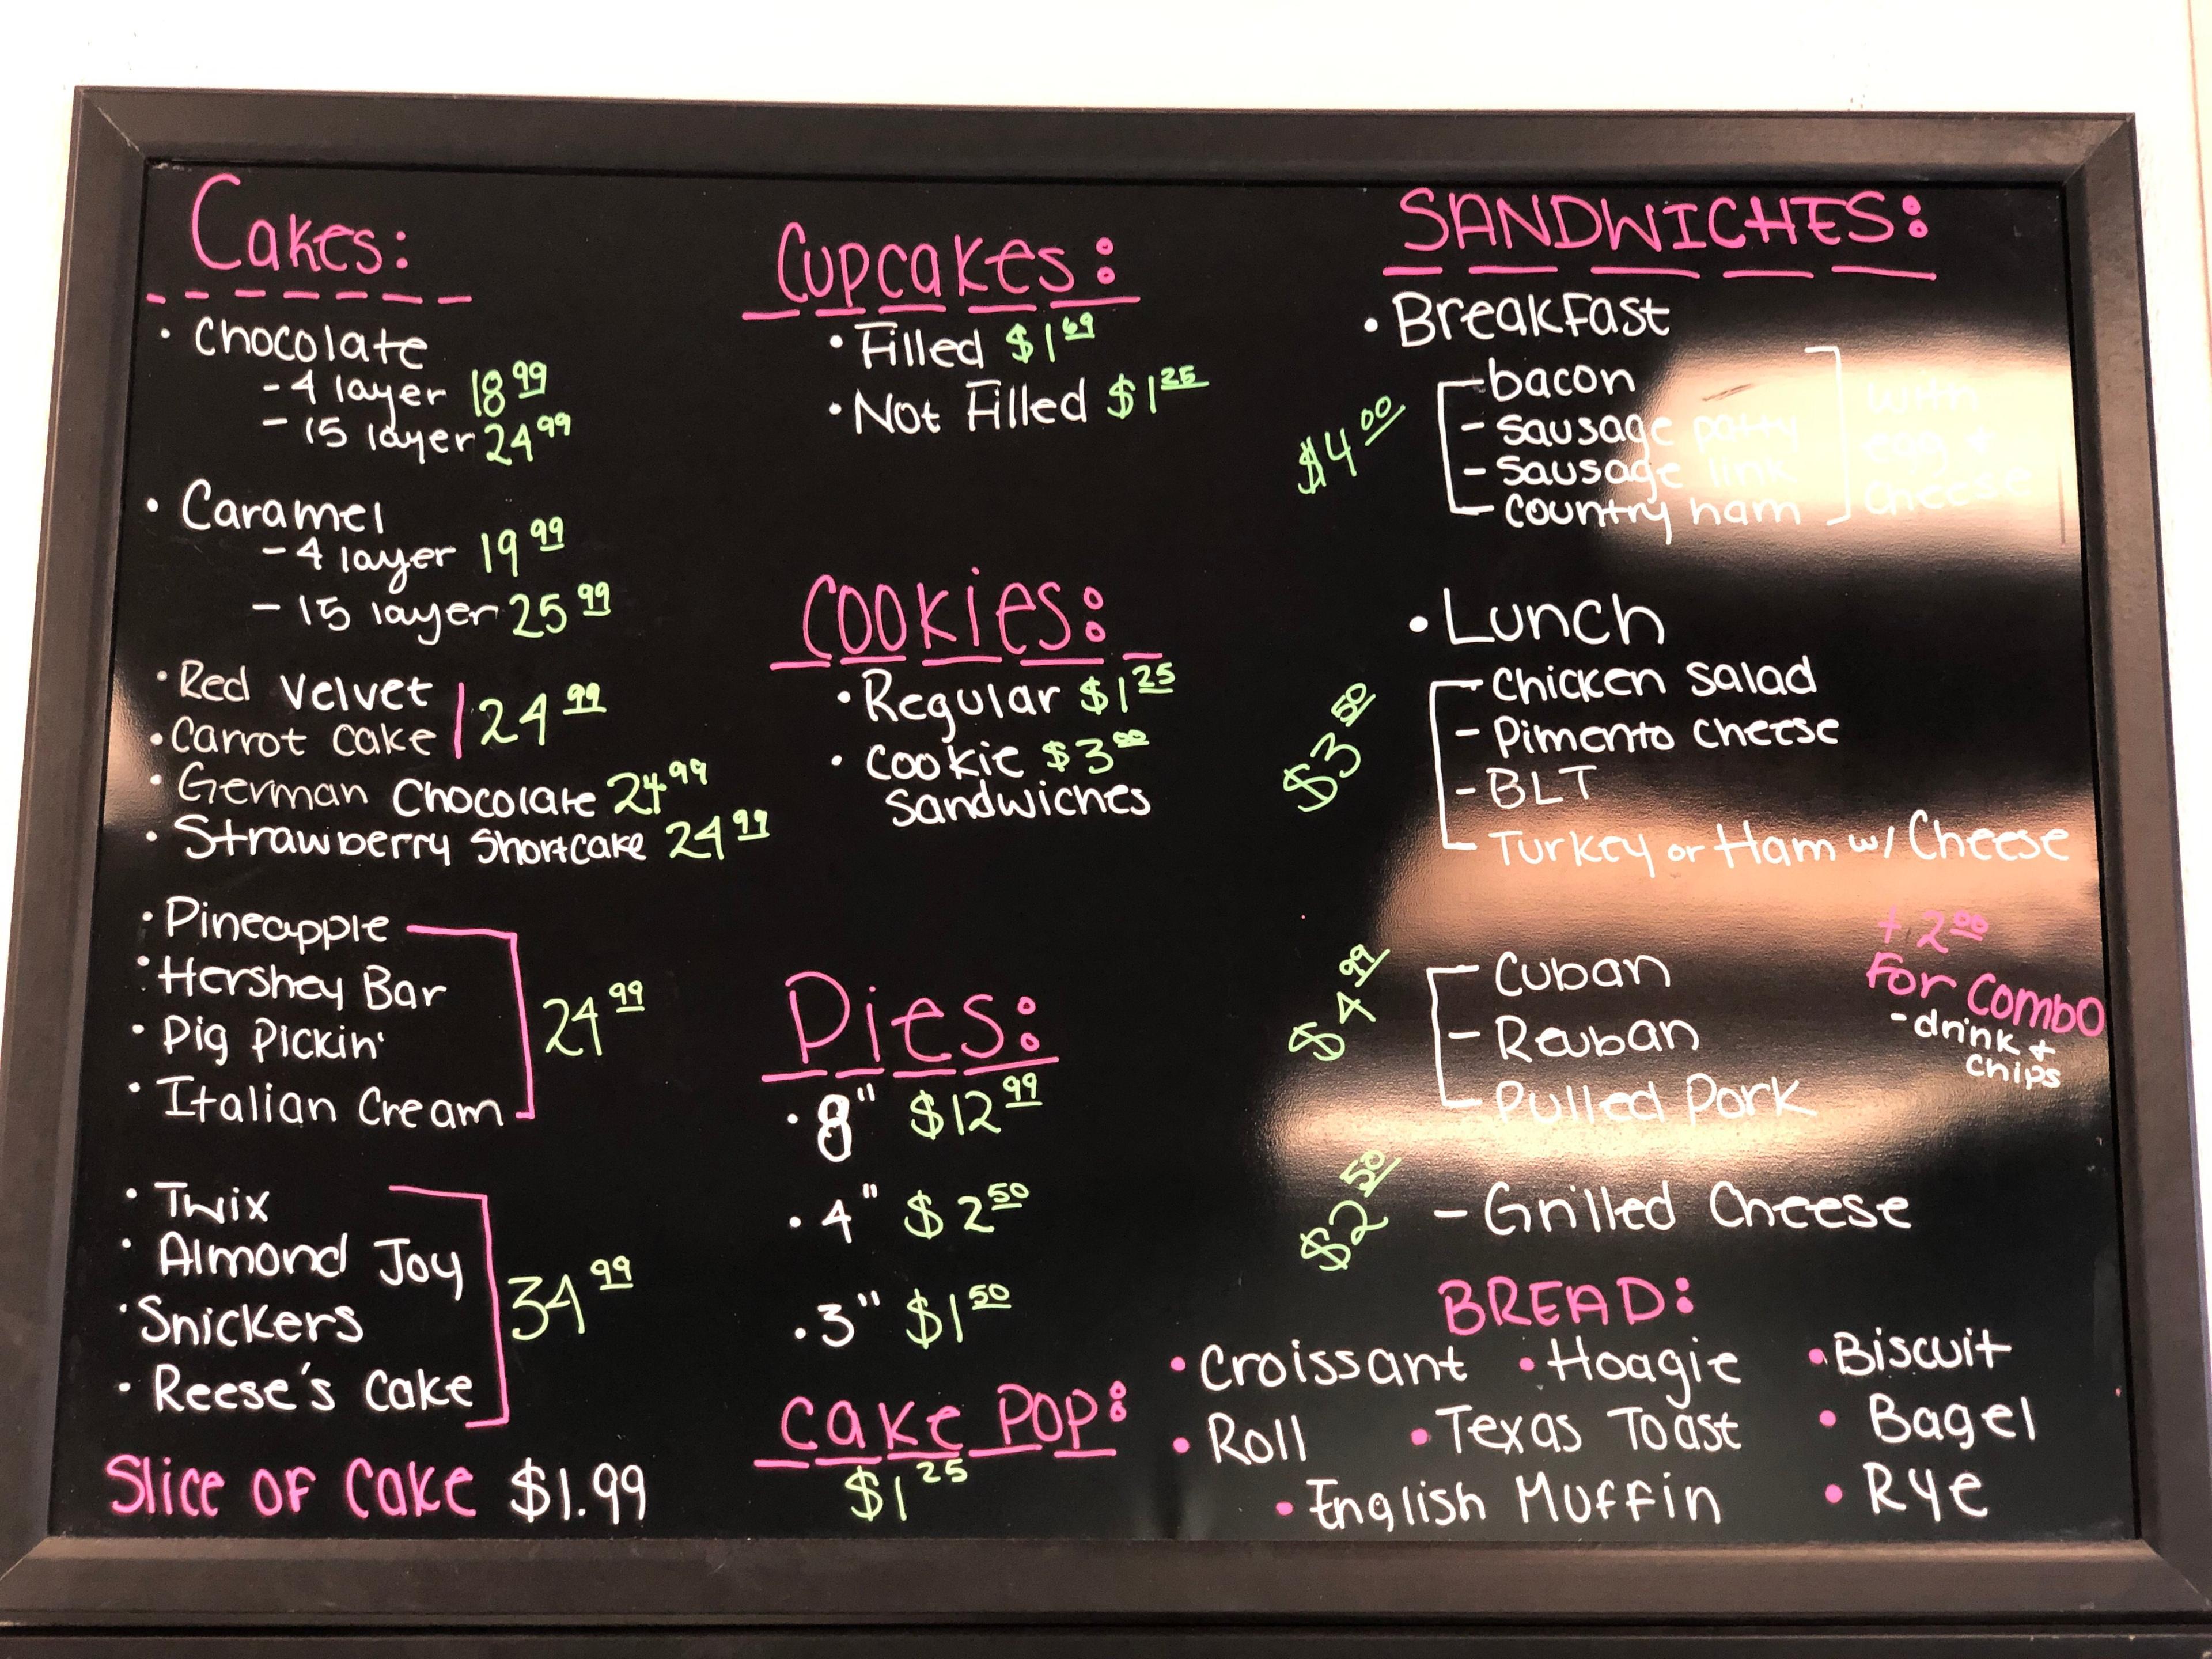 Cakes:
• Chocolate
- 4 layer 18 99
- 15 layer 24 99
• Caramel
- 4 layer 19 99
- 15 layer 25 99
• Red Velvet
• Carrot Cake 24 99
• German Chocolate 24 99
• Strawberry Shortcake 24 99
• Pineapple
• Hershey Bar
• Pig Pickin'
• Italian Cream
24 99
• Twix
• Almond Joy
• Snickers
• Reese's Cake
34 99
Slice of Cake $1.99
Cupcakes:
• Filled $1 69
• Not Filled $1 25
Cookies:
• Regular $1 25
• Cookie $3 00
Sandwiches
Pies:
• 8" $12 99
• 4" $2 50
• 3" $1 50
Cake Pop:
$1 25
SANDWICHES:
• Breakfast
$4 00
- bacon
- Sausage patty
- Sausage link
- Country ham
with
egg +
Cheese
• Lunch
$3 50
- Chicken Salad
- Pimento Cheese
- BLT
- Turkey or Ham w/ Cheese
$4 99
- Cuban
- Reuban
- Pulled Pork
+ 2 00
For Combo
- drink +
chips
$2 50 - Grilled Cheese
BREAD:
• Croissant • Hoagie • Biscuit
• Roll • Texas Toast • Bagel
• English Muffin • Rye